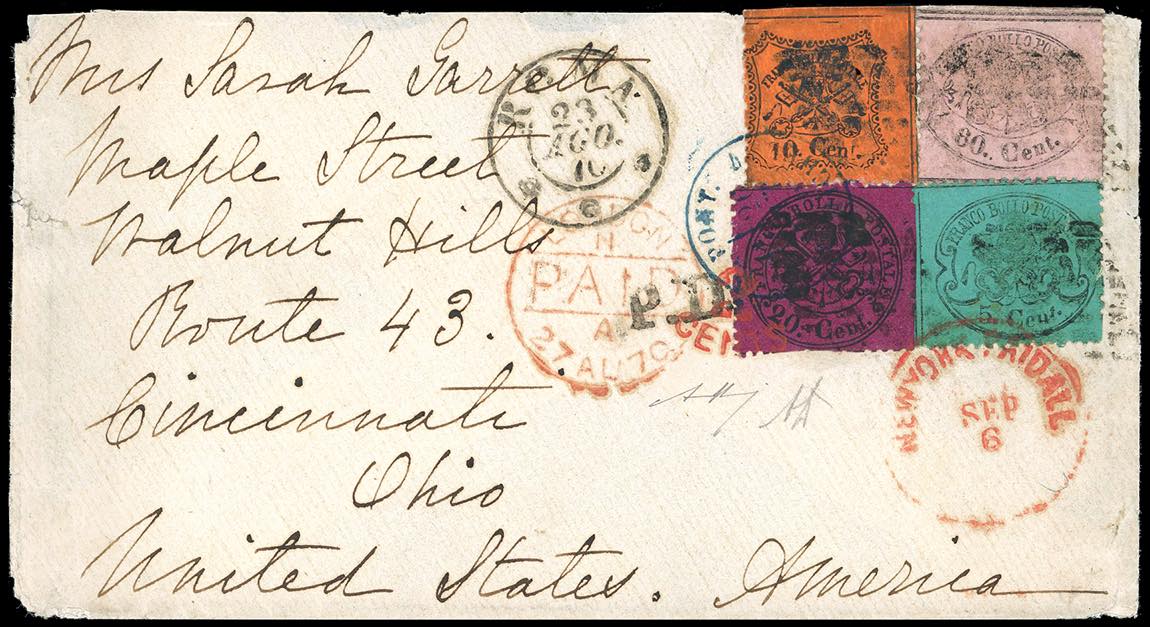 Mrs Sarah Garrett
Maple Street
Walnut Hills
Route 43.
Cincinnati
Ohio
United States. America
ROMA
23
AGO.
70
LONDON
N
PAID
A
27 AU 70
P.D.
CEN
10. Cent.
FRANCO BOLLO POSTALE
80. Cent.
FRANCO BOLLO POSTALE
20. Cent.
FRANCO BOLLO POSTALE
5 Cent.
NEW YORK PAID ALL
SEP
6